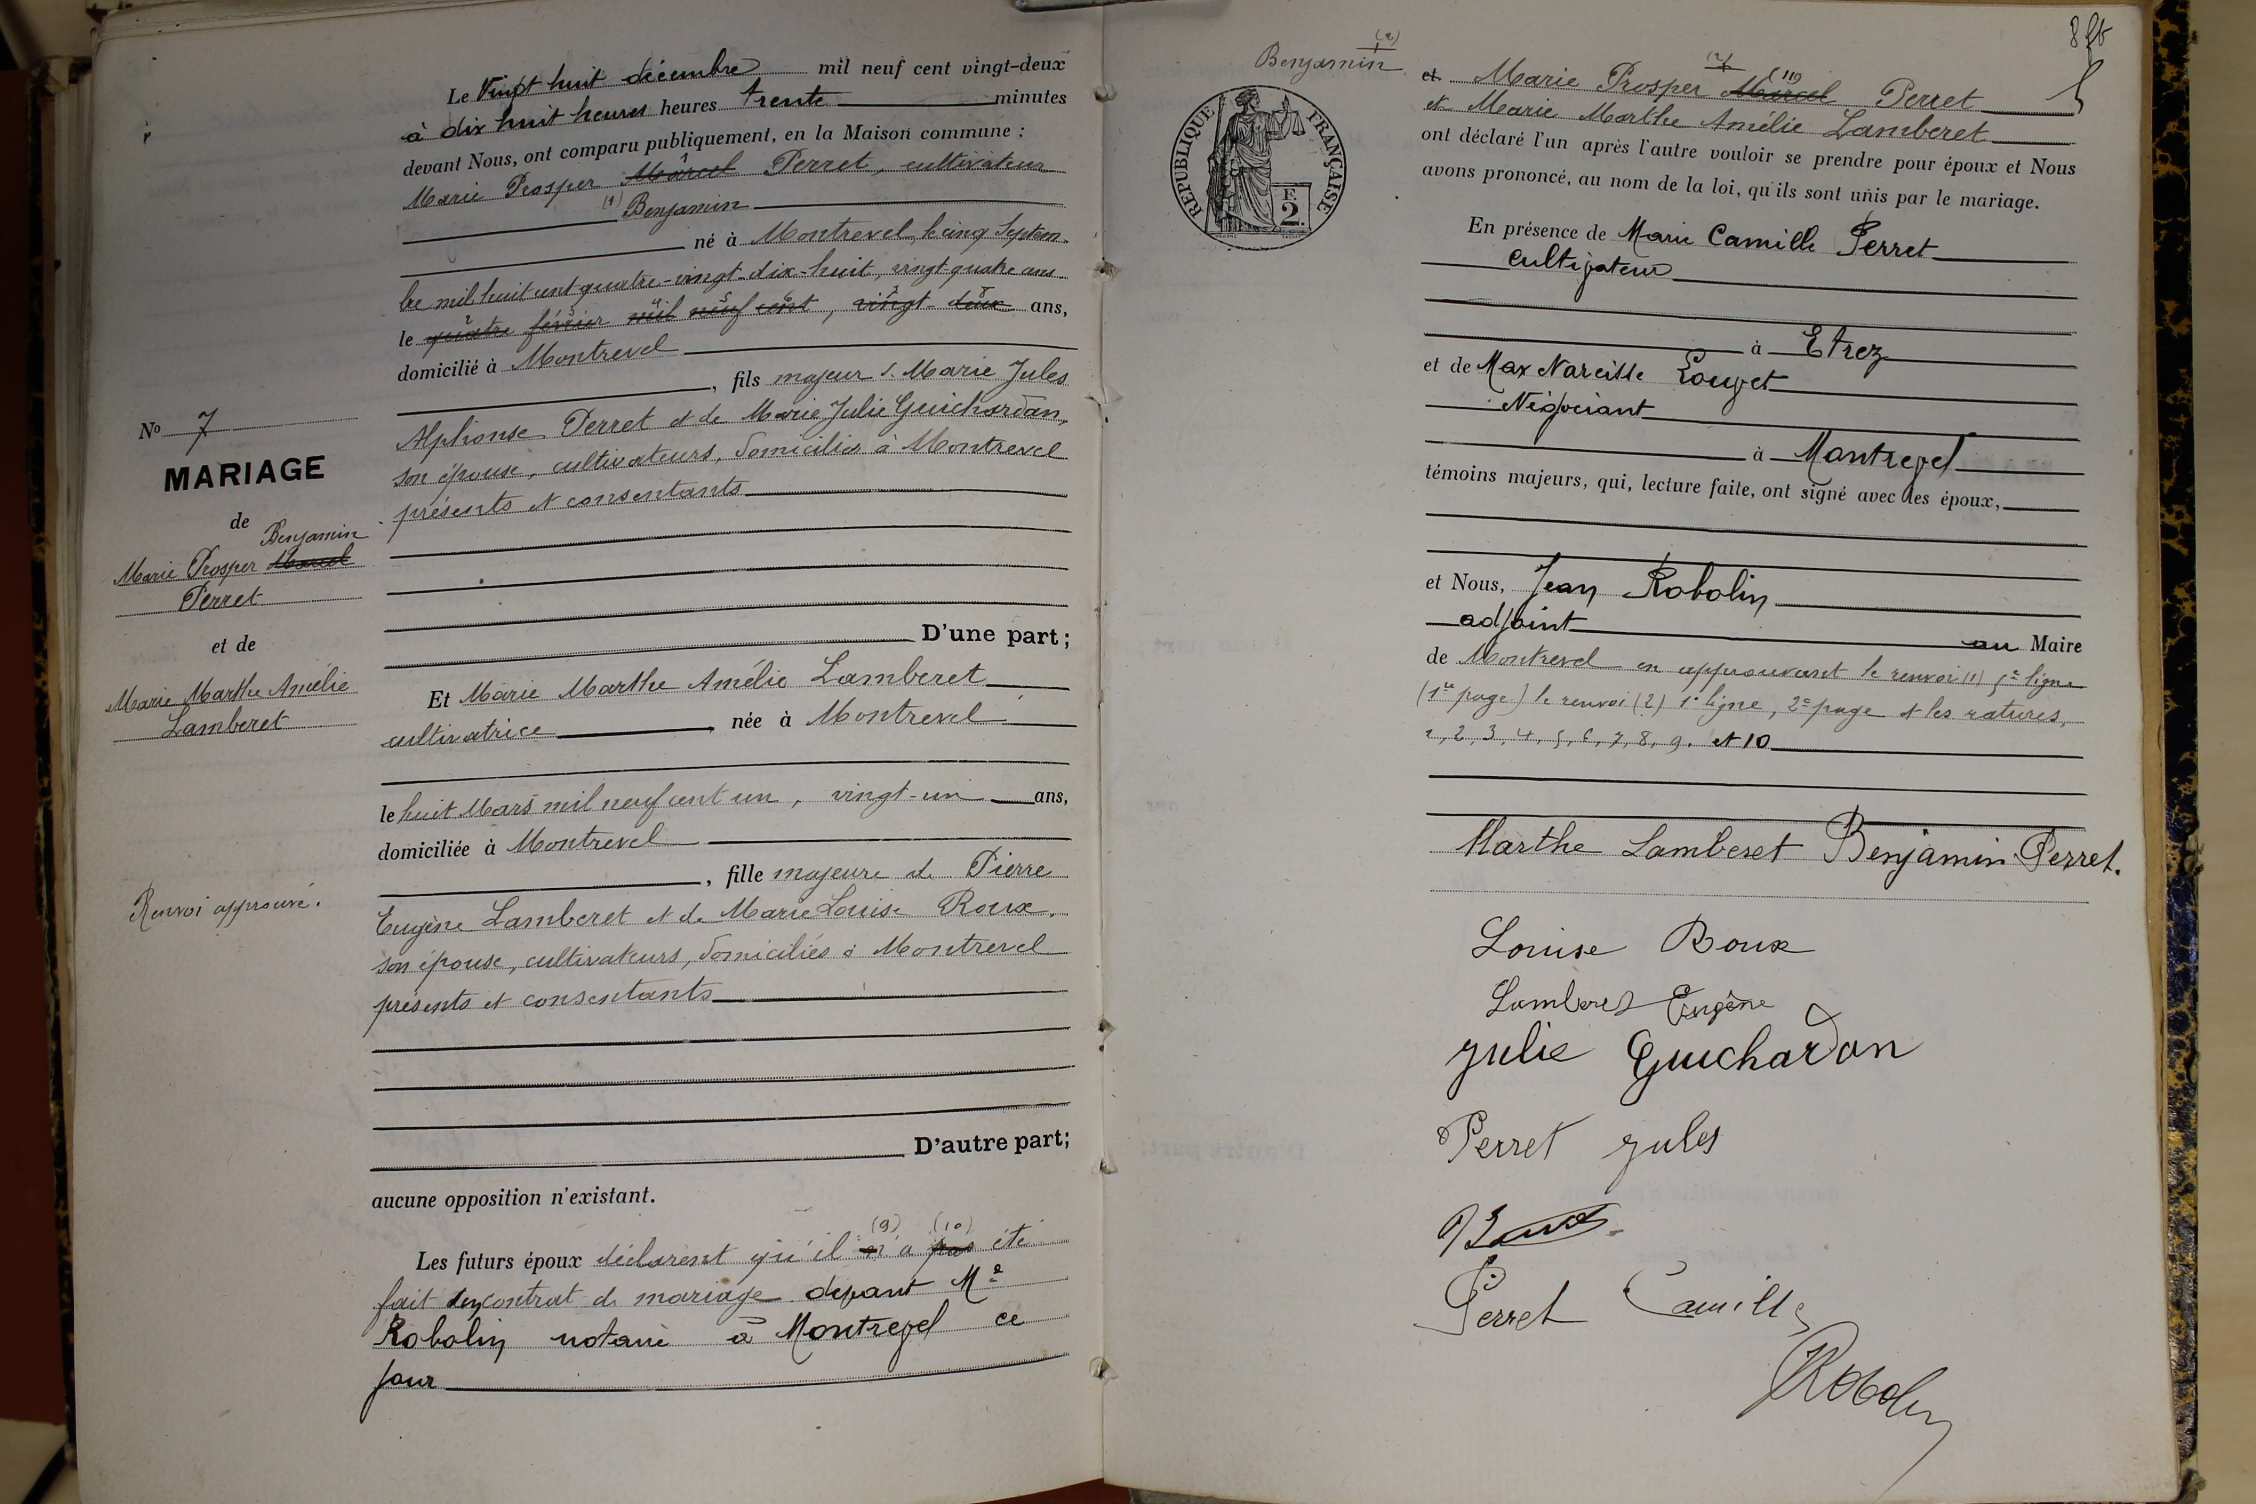 Le Vingt huit décembre mil neuf cent vingt-deux
à dix huit heures heures trente minutes
devant Nous, ont comparu publiquement, en la Maison commune :
Marie Prosper Marcel Perret, cultivateur
(1) Benjamin
né à Montrevel, le cinq Septem-
bre mil huit cent quatre-vingt-dix-huit, vingt quatre ans
le quatre février mil neuf cent, vingt-deux ans,
domicilié à Montrevel
, fils majeur d. Marie Jules
Alphonse Perret et de Marie Julie Guichardan,
son épouse, cultivateurs, domiciliés à Montrevel
présents et consentants
D'une part;
Et Marie Marthe Amélie Lamberet
cultivatrice, née à Montrevel
le huit Mars mil neuf cent un, vingt-un ans,
domiciliée à Montrevel
, fille majeure de Pierre
Eugène Lamberet et de Marie Louise Roux,
son épouse, cultivateurs, domiciliés à Montrevel
présents et consentants
D'autre part;
aucune opposition n'existant.
(9) (10)
Les futurs époux déclarent qu'il n'a pas été
fait un contrat de mariage devant Me
Robolin notaire à Montrevel ce
jour
No 7
MARIAGE
de
Benjamin
Marie Prosper Marcel
Perret
et de
Marie Marthe Amélie
Lamberet
Renvoi approuvé.
(2)
Benjamin
RÉPUBLIQUE FRANÇAISE
F. 2
et Marie Prosper Marcel Perret
et Marie Marthe Amélie Lamberet
ont déclaré l'un après l'autre vouloir se prendre pour époux et Nous
avons prononcé, au nom de la loi, qu'ils sont unis par le mariage.
En présence de Marie Camille Perret
cultivateur
à Etrez
et de Max Narcisse Louvet
Négociant
à Montrevel
témoins majeurs, qui, lecture faite, ont signé avec les époux,
et Nous, Jean Robolin
adjoint au Maire
de Montrevel en approuvant le renvoi (1) 5e ligne
(1re page) le renvoi (2) 1e ligne, 2e page et les ratures,
1, 2, 3, 4, 5, 6, 7, 8, 9. et 10
Marthe Lamberet Benjamin Perret.
Louise Roux
Lamberet Eugène
Julie Guichardan
Perret Jules
Perret Camille
Robolin